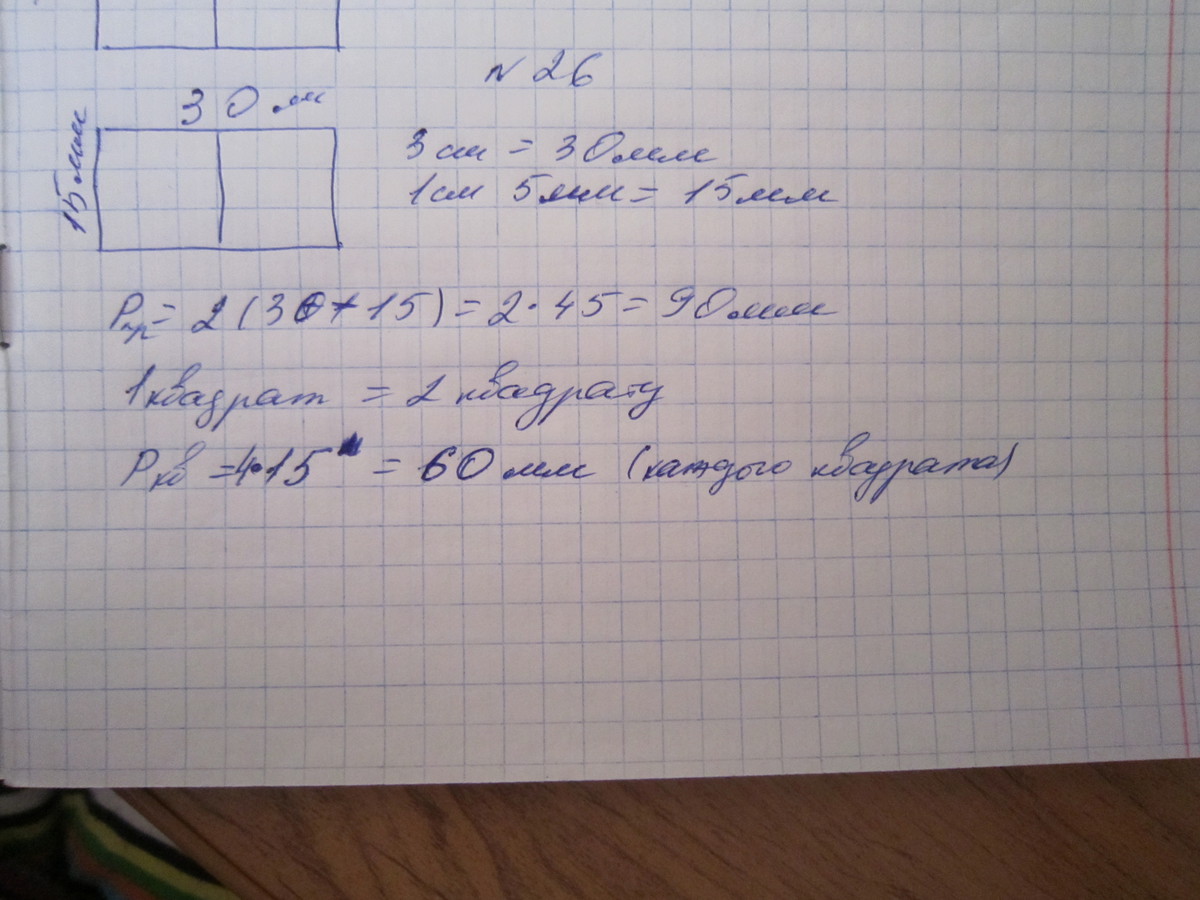 N 26
30 мм
15 мм
3 см = 30 мм
1 см 5 мм = 15 мм
Pпр = 2 (30 + 15) = 2 · 45 = 90 мм
1 квадрат = 2 квадрату
Pкв = 4 · 15 = 60 мм (каждого квадрата)